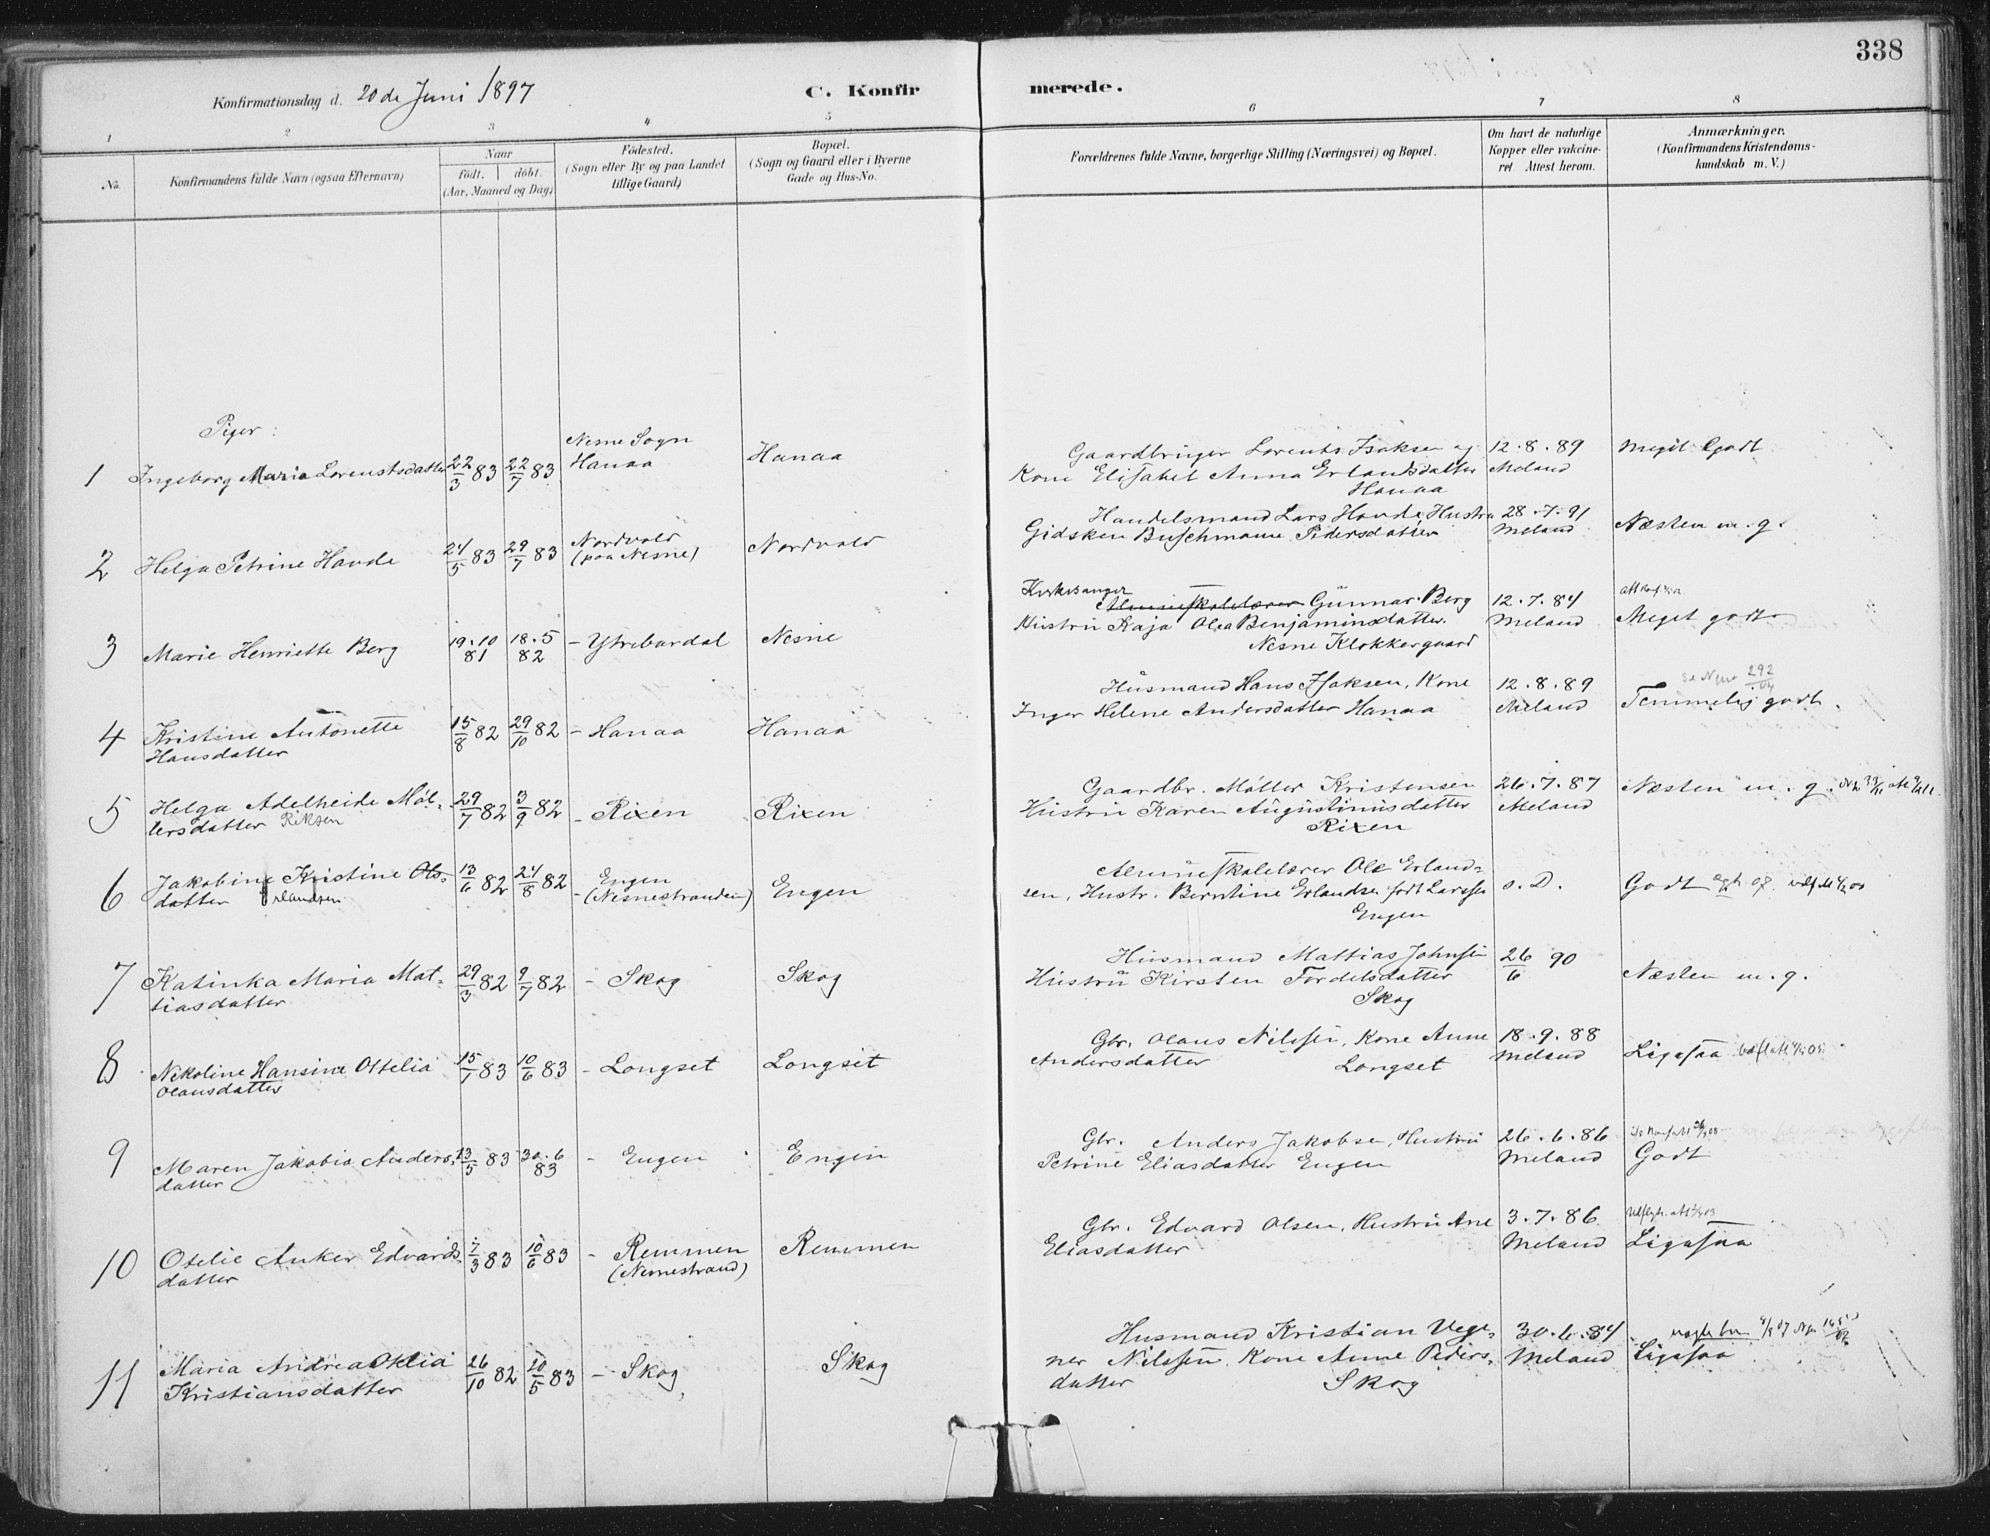 338
Konfirmationsdag d. 20de Juni 1897
C. Konfirmerede.
1 2 3 4 5 6 7 8
No.
Konfirmandens fulde Navn (ogsaa Efternavn)
Naar
födt. döbt.
(Aar, Maaned og Dag)
Födested.
(Sogn eller By og paa Landet
tillige Gaard)
Bopæl.
(Sogn og Gaard eller i Byerne
Gade og Hus-No.
Forældrenes fulde Navne, borgerlige Stilling (Næringsvei) og Bopæl.
Om havt de naturlige
Kopper eller vakcine-
ret Attest herom.
Anmærkninger.
(Konfirmandens Kristendoms-
kundskab m. V.)
Piger:
1 Ingeborg Maria Lorentsdatter 22/3 83 22/7 83
Nesne Sogn
Hanaa
Hanaa
Gaardbruger Lorents Isaksen og
Kone Elisabet Anna Erlandsdatter
Hanaa
12.8.89
Meland
Meget Godt
2 Helga Petrine Havde 24/5 83 29/7 83
Nordvold
(paa Nesne)
Nordvold
Handelsmand Lars Havde, Hustru
Gidsken Buschmann Pedersdatter
28.7.91
Meland
Næsten m.g.
3 Marie Henriette Berg 19.10 81 18.5 82
- Ytrebardal
Nesne
Kirkesanger
Almueskolelærer Gunnar Berg
Hustru Kaja Olea Benjaminsdatter.
Nesne Klokkergaard
12.7.84
Meland
Meget godt
4 Kristine Antonette
Hansdatter
15/8 82 29/10 82
- Hanaa
Hanaa
Husmand Hans Isaksen, Kone
Inger Helene Andersdatter Hanaa
12.8.89
Meland
292/04
Temmelig godt.
5 Helga Adelheide Möl-
lersdatter Riksen
29/7 82 3/9 82
- Rixen
Rixen
Gaardbr. Möller Kristensen
Hustru Karen Augustinusdatter
Rixen
26.7.87
Meland
Næsten m.g.
6 Jakobine Kristine Ols-
datter Erlandsen
13/6 82 24/8 82
Engen
- (Nesnestranden)
Engen
Almueskolelærer Ole Erland-
sen, Hustr. Berntine Erlandsen født Larssen
Engen
s. D.
Godt
7 Katinka Maria Mat-
tiasdatter
29/3 82 9/7 82
- Skog
Skog
Husmand Mattias Johnsen
Hustru Kirsten Tordelsdatter
Skog
26/6 90
Næsten m.g.
8 Nikoline Hansine Ottelia
Olausdatter
15/7 83 10/6 83
- Longset
Longset
Gbr. Olaus Nilssen, Kone Anne
Andersdatter Longset
18.9.88
Meland
Ligesaa
9 Maren Jakobia Anders-
datter
13/5 83 30.6 83
- Engen
Engen
Gbr. Anders Jakobsen, Hustru
Petrine Eliasdatter Engen
26.6.86
Meland
Godt
10 Otelie Anker Edvards-
datter
7/3 83 10/6 83
- Remmen
(Nesnestrand)
Remmen
Gbr. Edvard Olsen, Hustru Ane
Eliasdatter
3.7.86
Meland
Ligesaa
11 Maria Andrea Otelia
Kristiansdatter
26/10 82 20/5 83
- Skog
Skog
Husmand Kristian Vege-
ner Nilssen, Kone Anne Peders-
datter Skog
30.6.84
Meland
Ligesaa